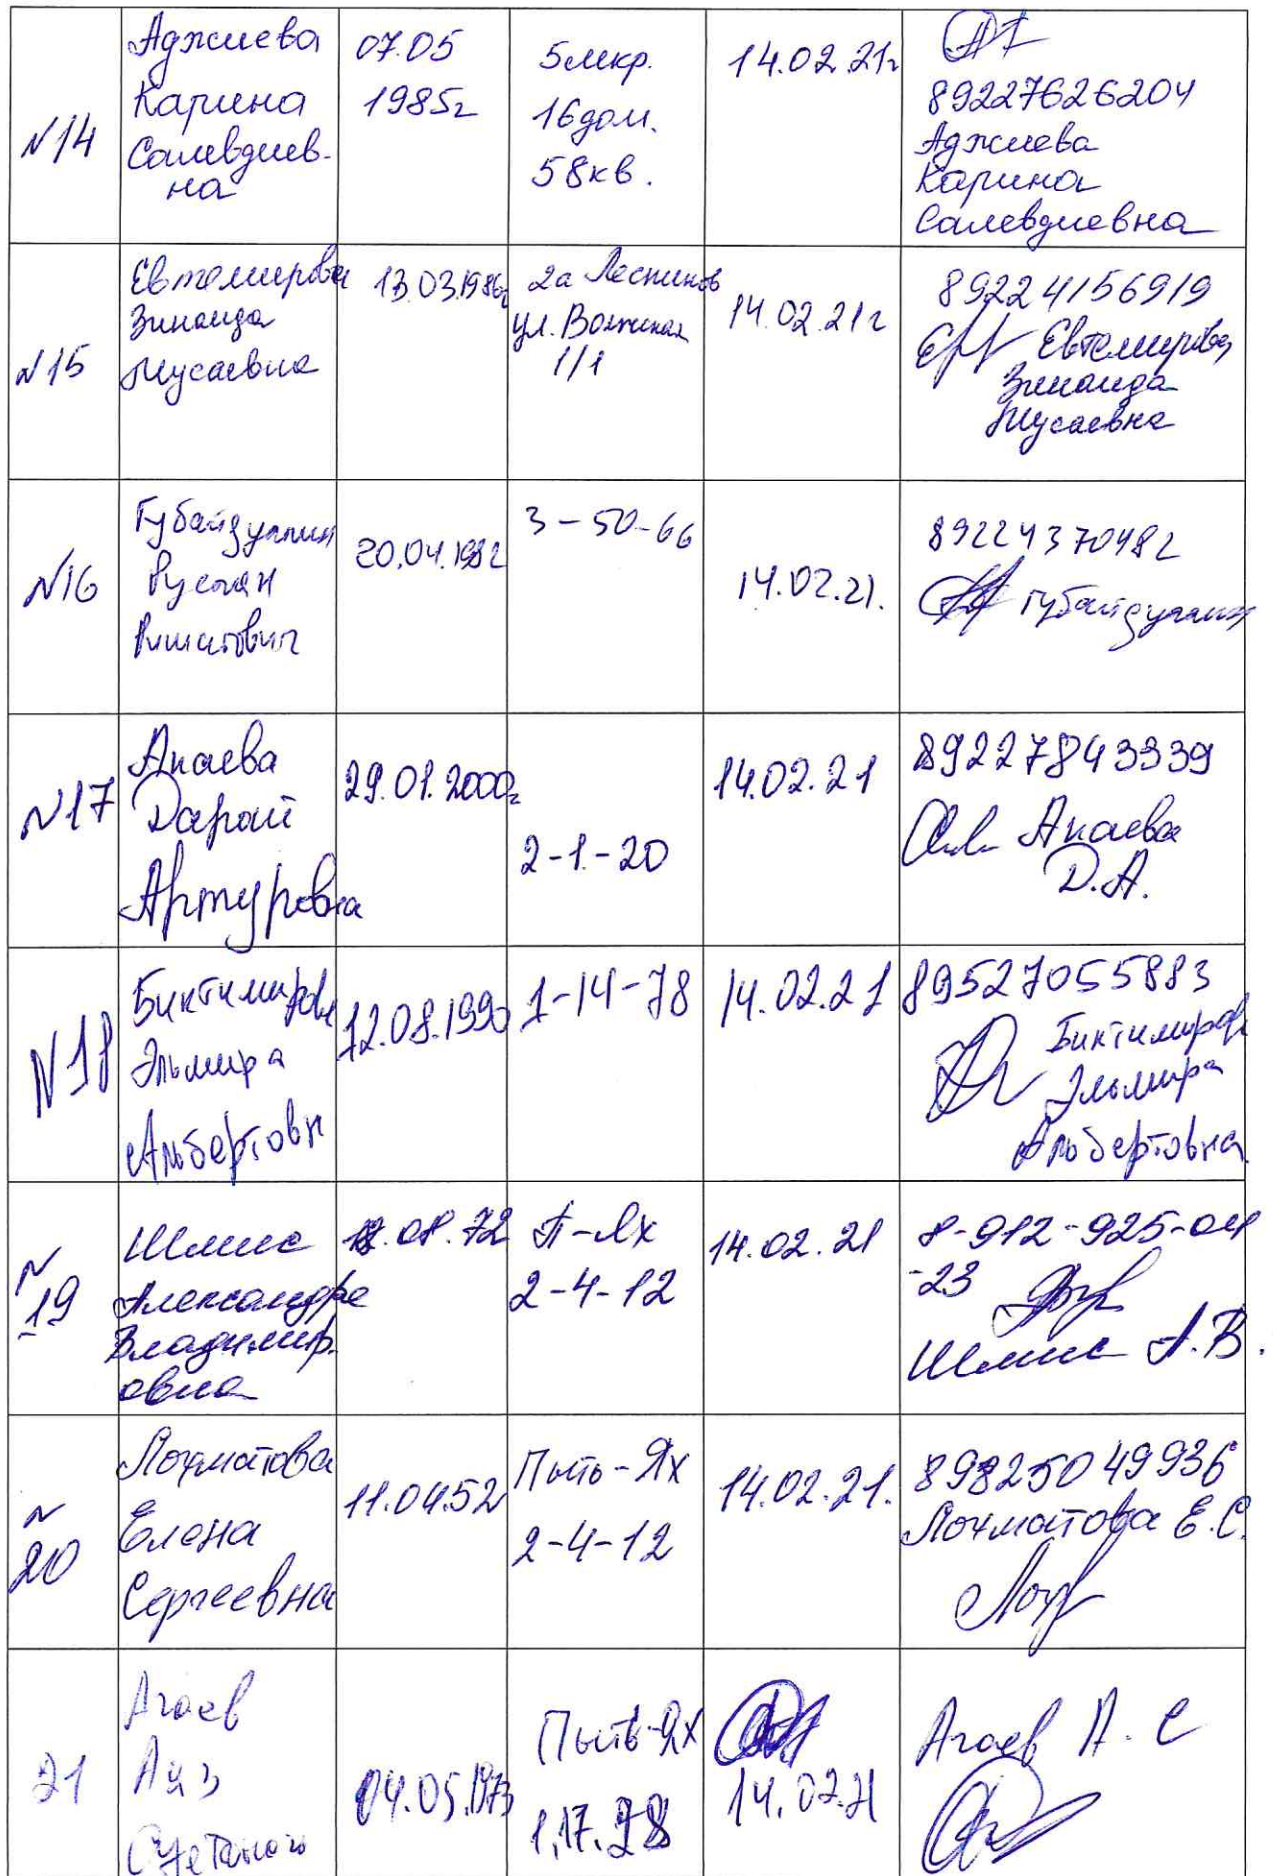 N14
Аджиева
Карина
Салевдиев-
на
07.05
1985г
5мкр.
16дом.
58кв.
14.02.21г
89227626204
Аджиева
Карина
Салевдиевна
N15
Евтемирова
Зинаида
Мусаевна
13.03.1986г
2а Лесников
ул. Волжская
1/1
14.02.21г
89224156919
Евтемирова
Зинаида
Мусаевна
N16
Губайдуллин
Руслан
Ришатович
20.04.1982
3-50-66
14.02.21.
89224370482
Губайдуллин
N17
Акаева
Дарай
Артуровна
29.01.2000г
2-1-20
14.02.21
89227843339
Акаева
Д.А.
N18
Биктимирова
Эльмира
Альбертовн
12.08.1990
1-14-78
14.02.21
89527055883
Биктимирова
Эльмира
Альбертовна
N
19
Шмис
Александра
Владимир.
овна
08.72
П-Ях
2-4-12
14.02.21
8-912-925-04
-23
Шмис А.В.
N
20
Лохматова
Елена
Сергеевна
11.04.52
Пыть-Ях
2-4-12
14.02.21.
89825049936
Лохматова Е.С.
21
Агаев
Аяз
04.05.1973
Пыть-Ях
1,17.28
14.02.21
Агаев А.С